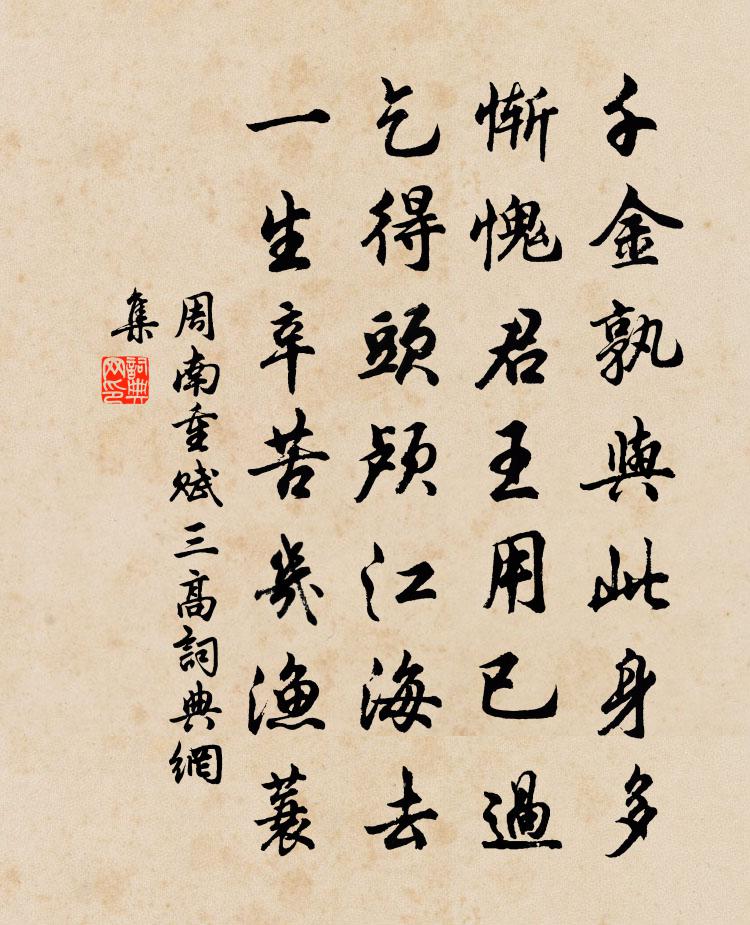 千金孰與此身多
慚愧君王用已過
乞得頭顱江海去
一生辛苦幾漁蓑
周南重賦三高詞典網
集
詞典
网印